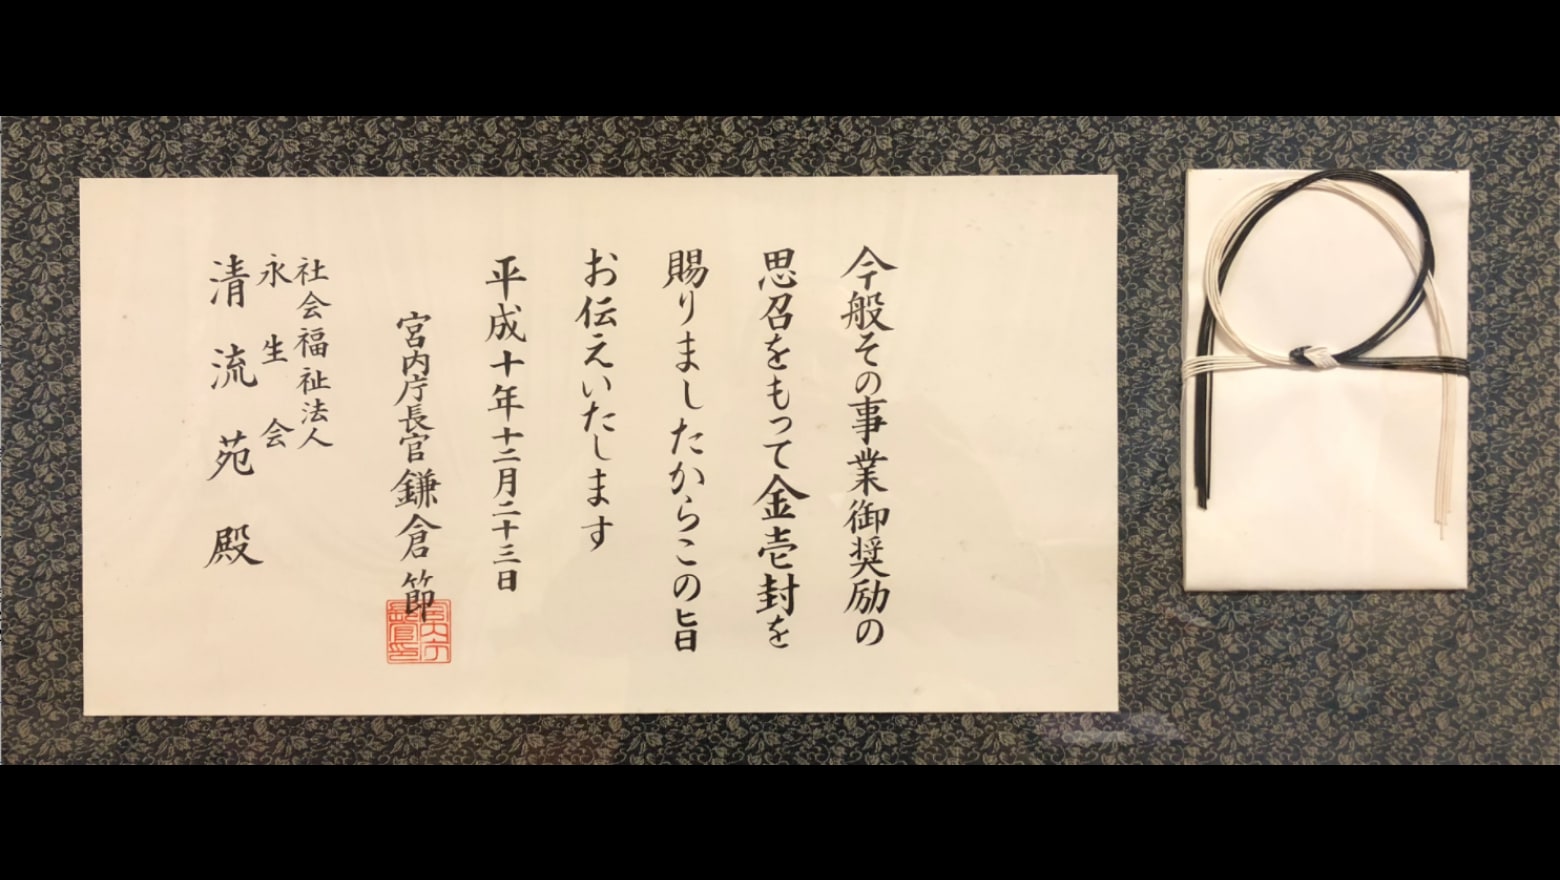 今般その事業御奨励の
思召をもって金壱封を
賜りましたからこの旨
お伝えいたします
平成十年十二月二十三日
宮内庁長官鎌倉節
社会福祉法人
永生会
清流苑殿